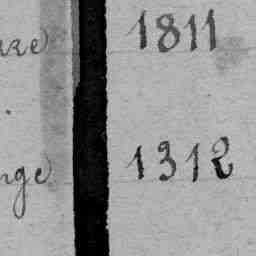 are 1811
nge 1312